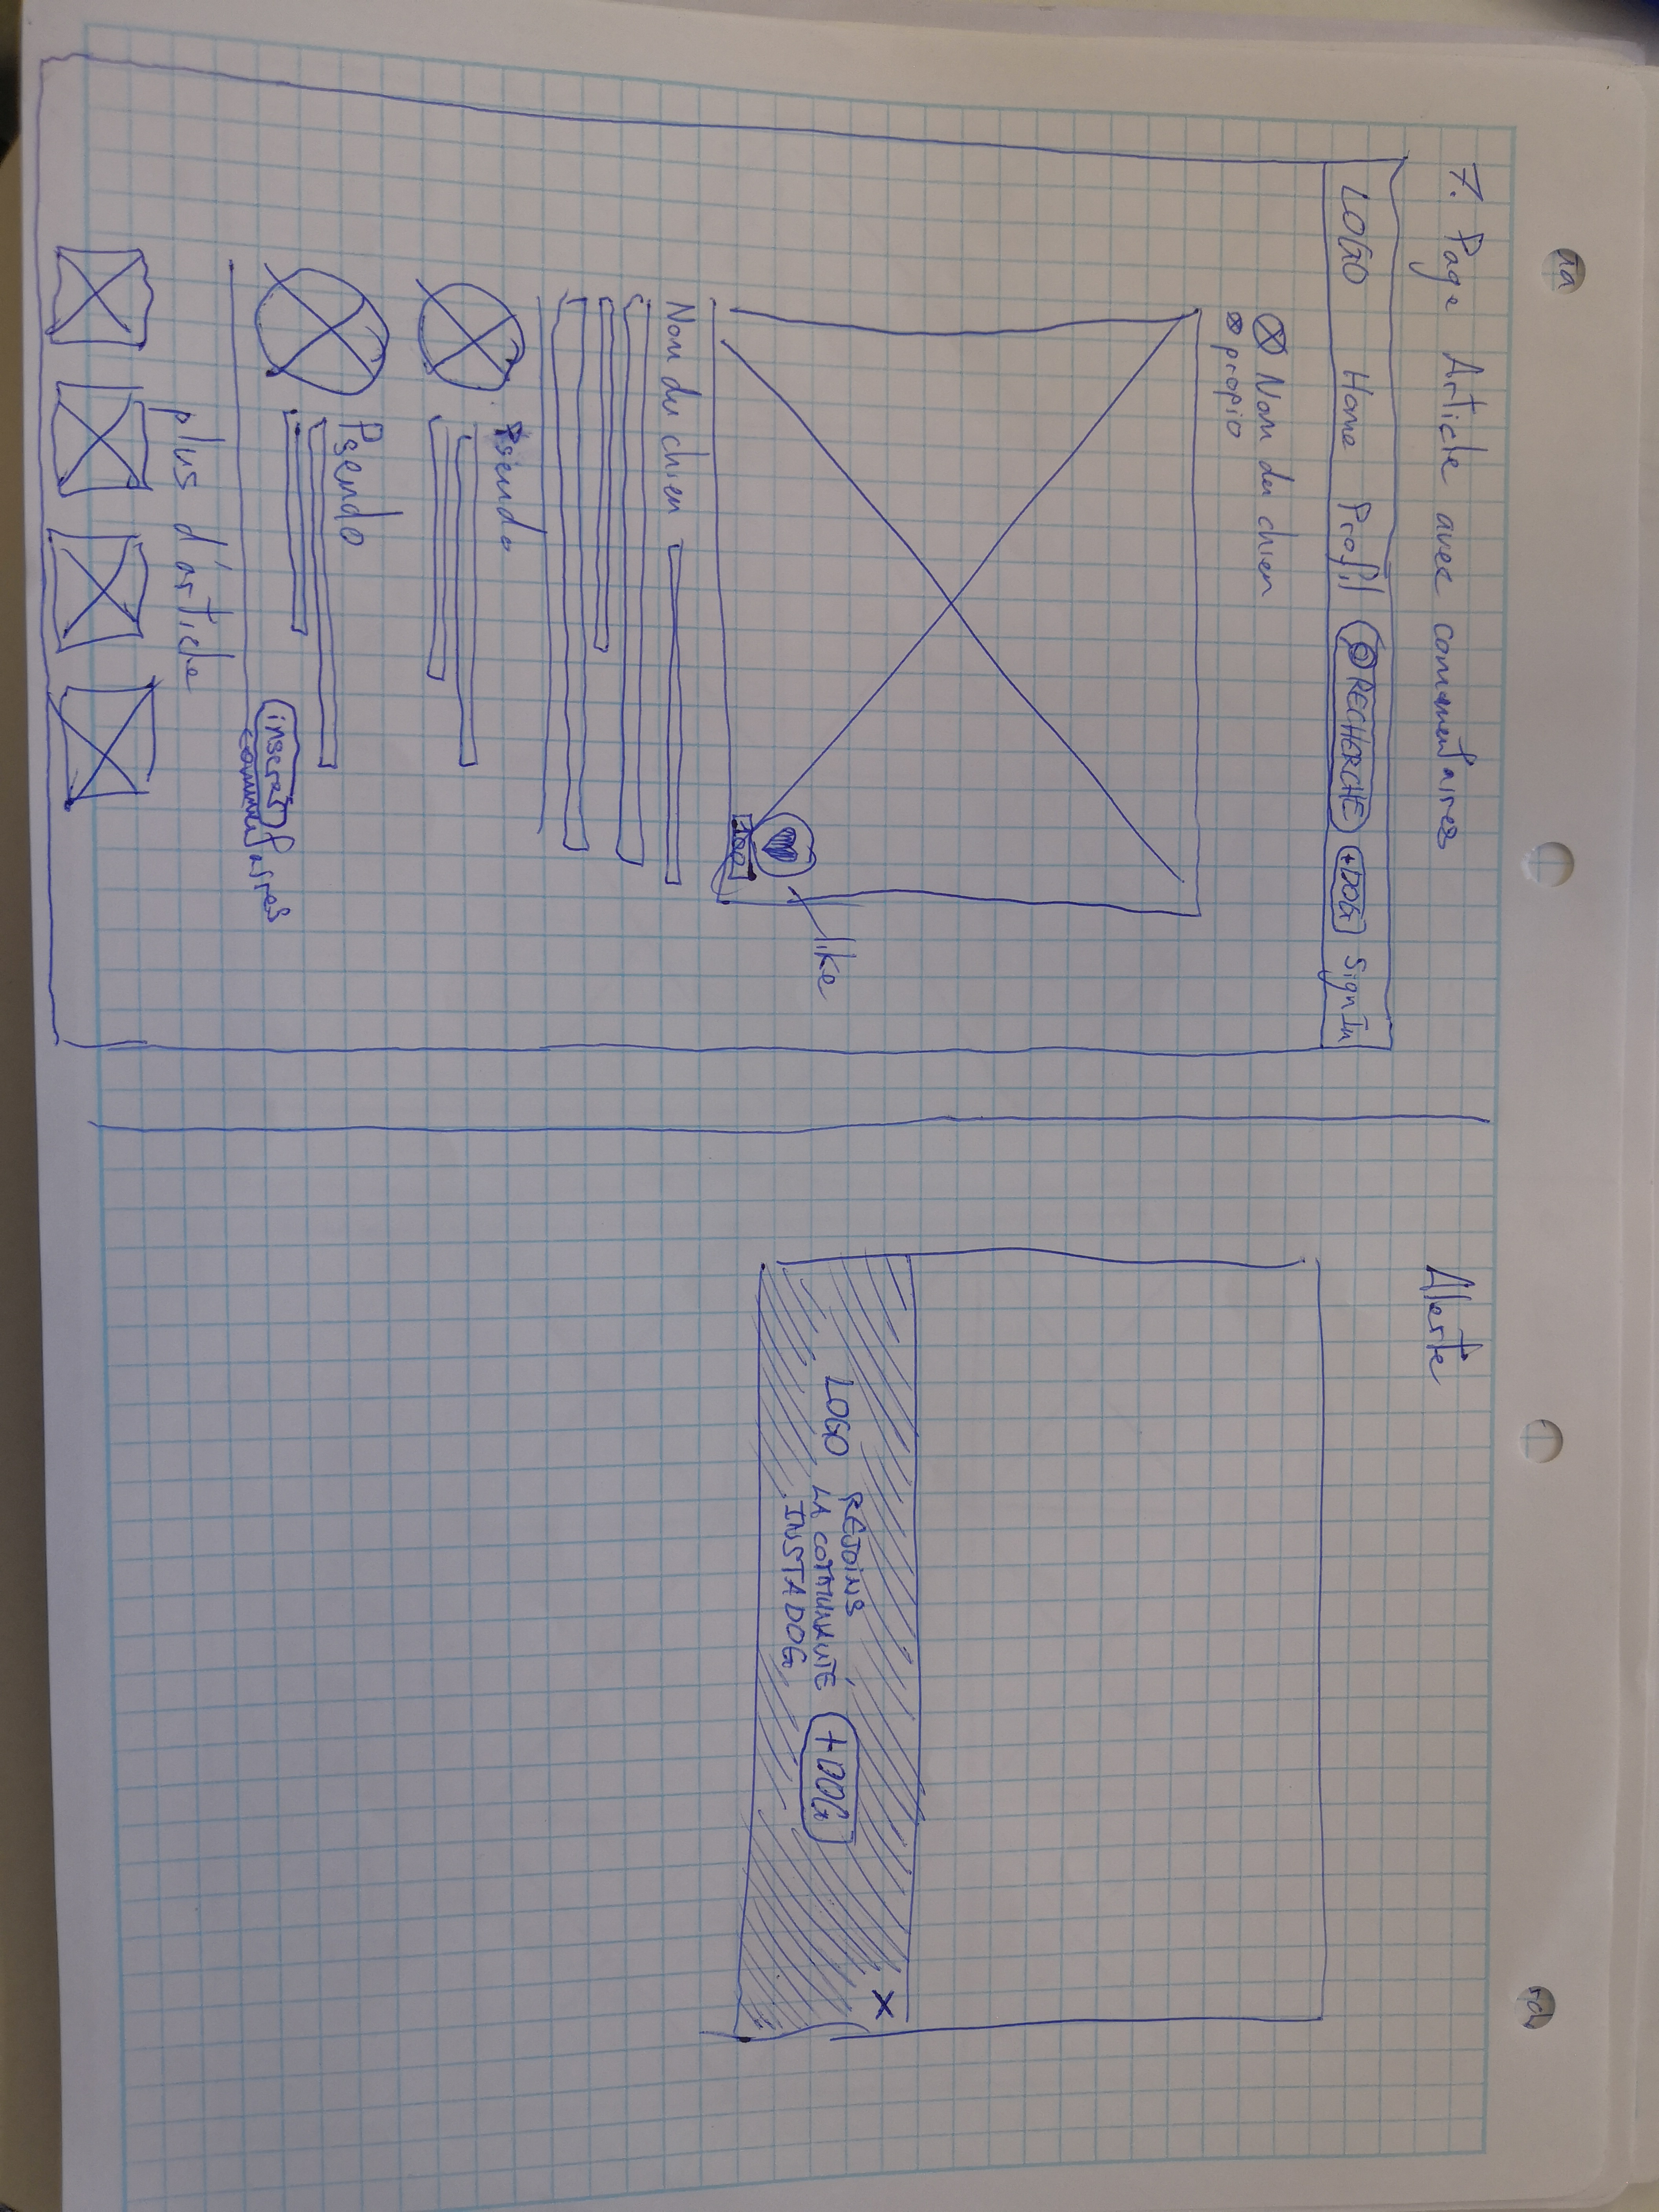 7. Page Article avec commentaires
LOGO Home Profil RECHERCHE +DOG Sign In
Nom du chien
propio
like
100
Nom du chien
Pseudo
Pseudo
inserer
commentaires
plus d'article
Alerte
LOGO
REJOINS
LA COMMUNAUTÉ
INSTADOG
+DOG
X